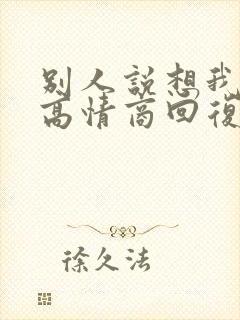 别人说想我
高情商回復
徐久法